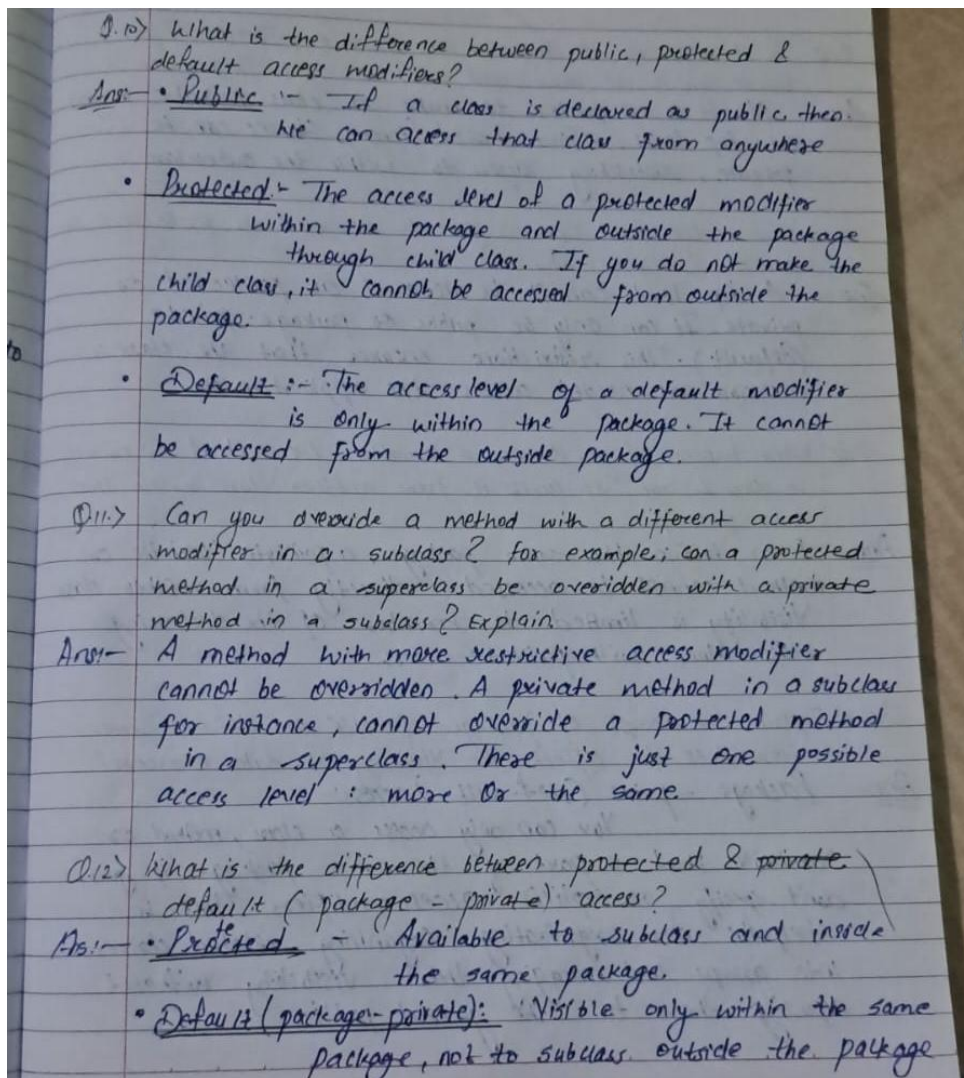 Q.10> What is the difference between public, protected &
default access modifiers?
Ans:- • Public :- If a class is declared as public then.
we can access that class from anywhere
• Protected:- The access level of a protected modifier
within the package and outside the package
through child class. If you do not make the
child class, it cannot be accessed from outside the
package.
to
• Default :- The access level of a default modifier
is only within the package. It cannot
be accessed from the outside package.
Q11.> Can you override a method with a different access
modifier in a subclass? for example; can a protected
method in a superclass be overidden with a private
method in a subclass? Explain.
Ans:- A method with more restrictive access modifier
cannot be overridden. A private method in a subclass
for instance, cannot override a protected method
in a superclass. There is just one possible
access level : more or the same
Q.12> What is the difference between protected & private
default (package - private) access?
As:- • Protected - Available to subclass and inside
the same package.
• Default (package-private): Visible only within the same
package, not to subclass outside the package